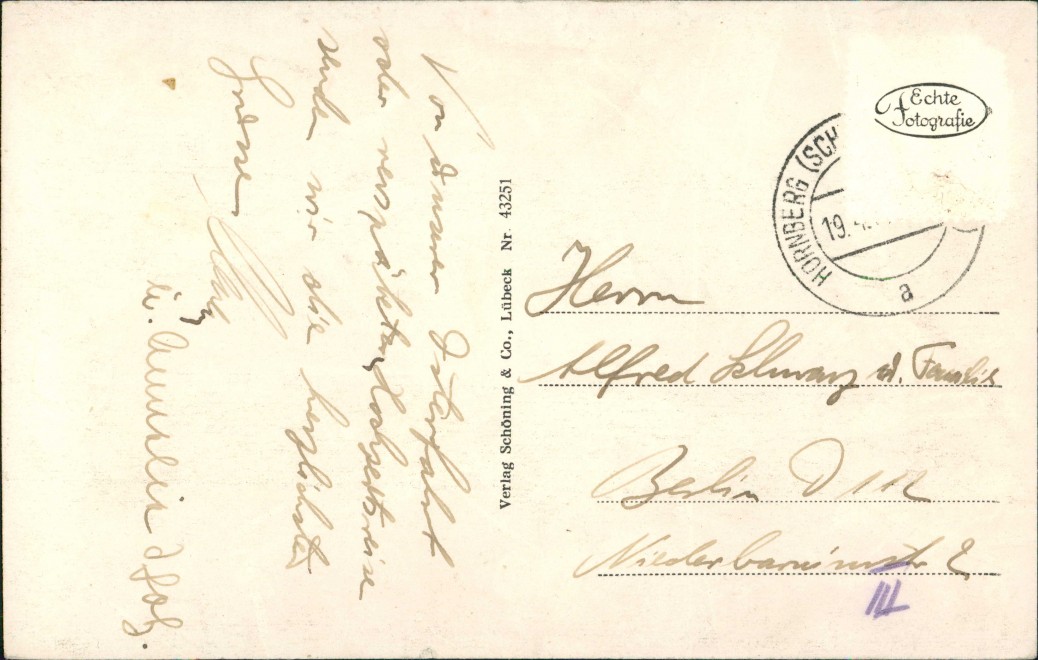 Von unserer Osterfahrt
oder verspäteten Hochzeitsreise
senden wir die herzlichsten
Grüsse
u.
Verlag Schöning & Co., Lübeck Nr. 43251
Echte
Fotografie
HORNBERG (SCH
19.
a
Herrn
Alfred Schwarz u. Familie
Berlin O 112
Niederbarnimstr 2
III